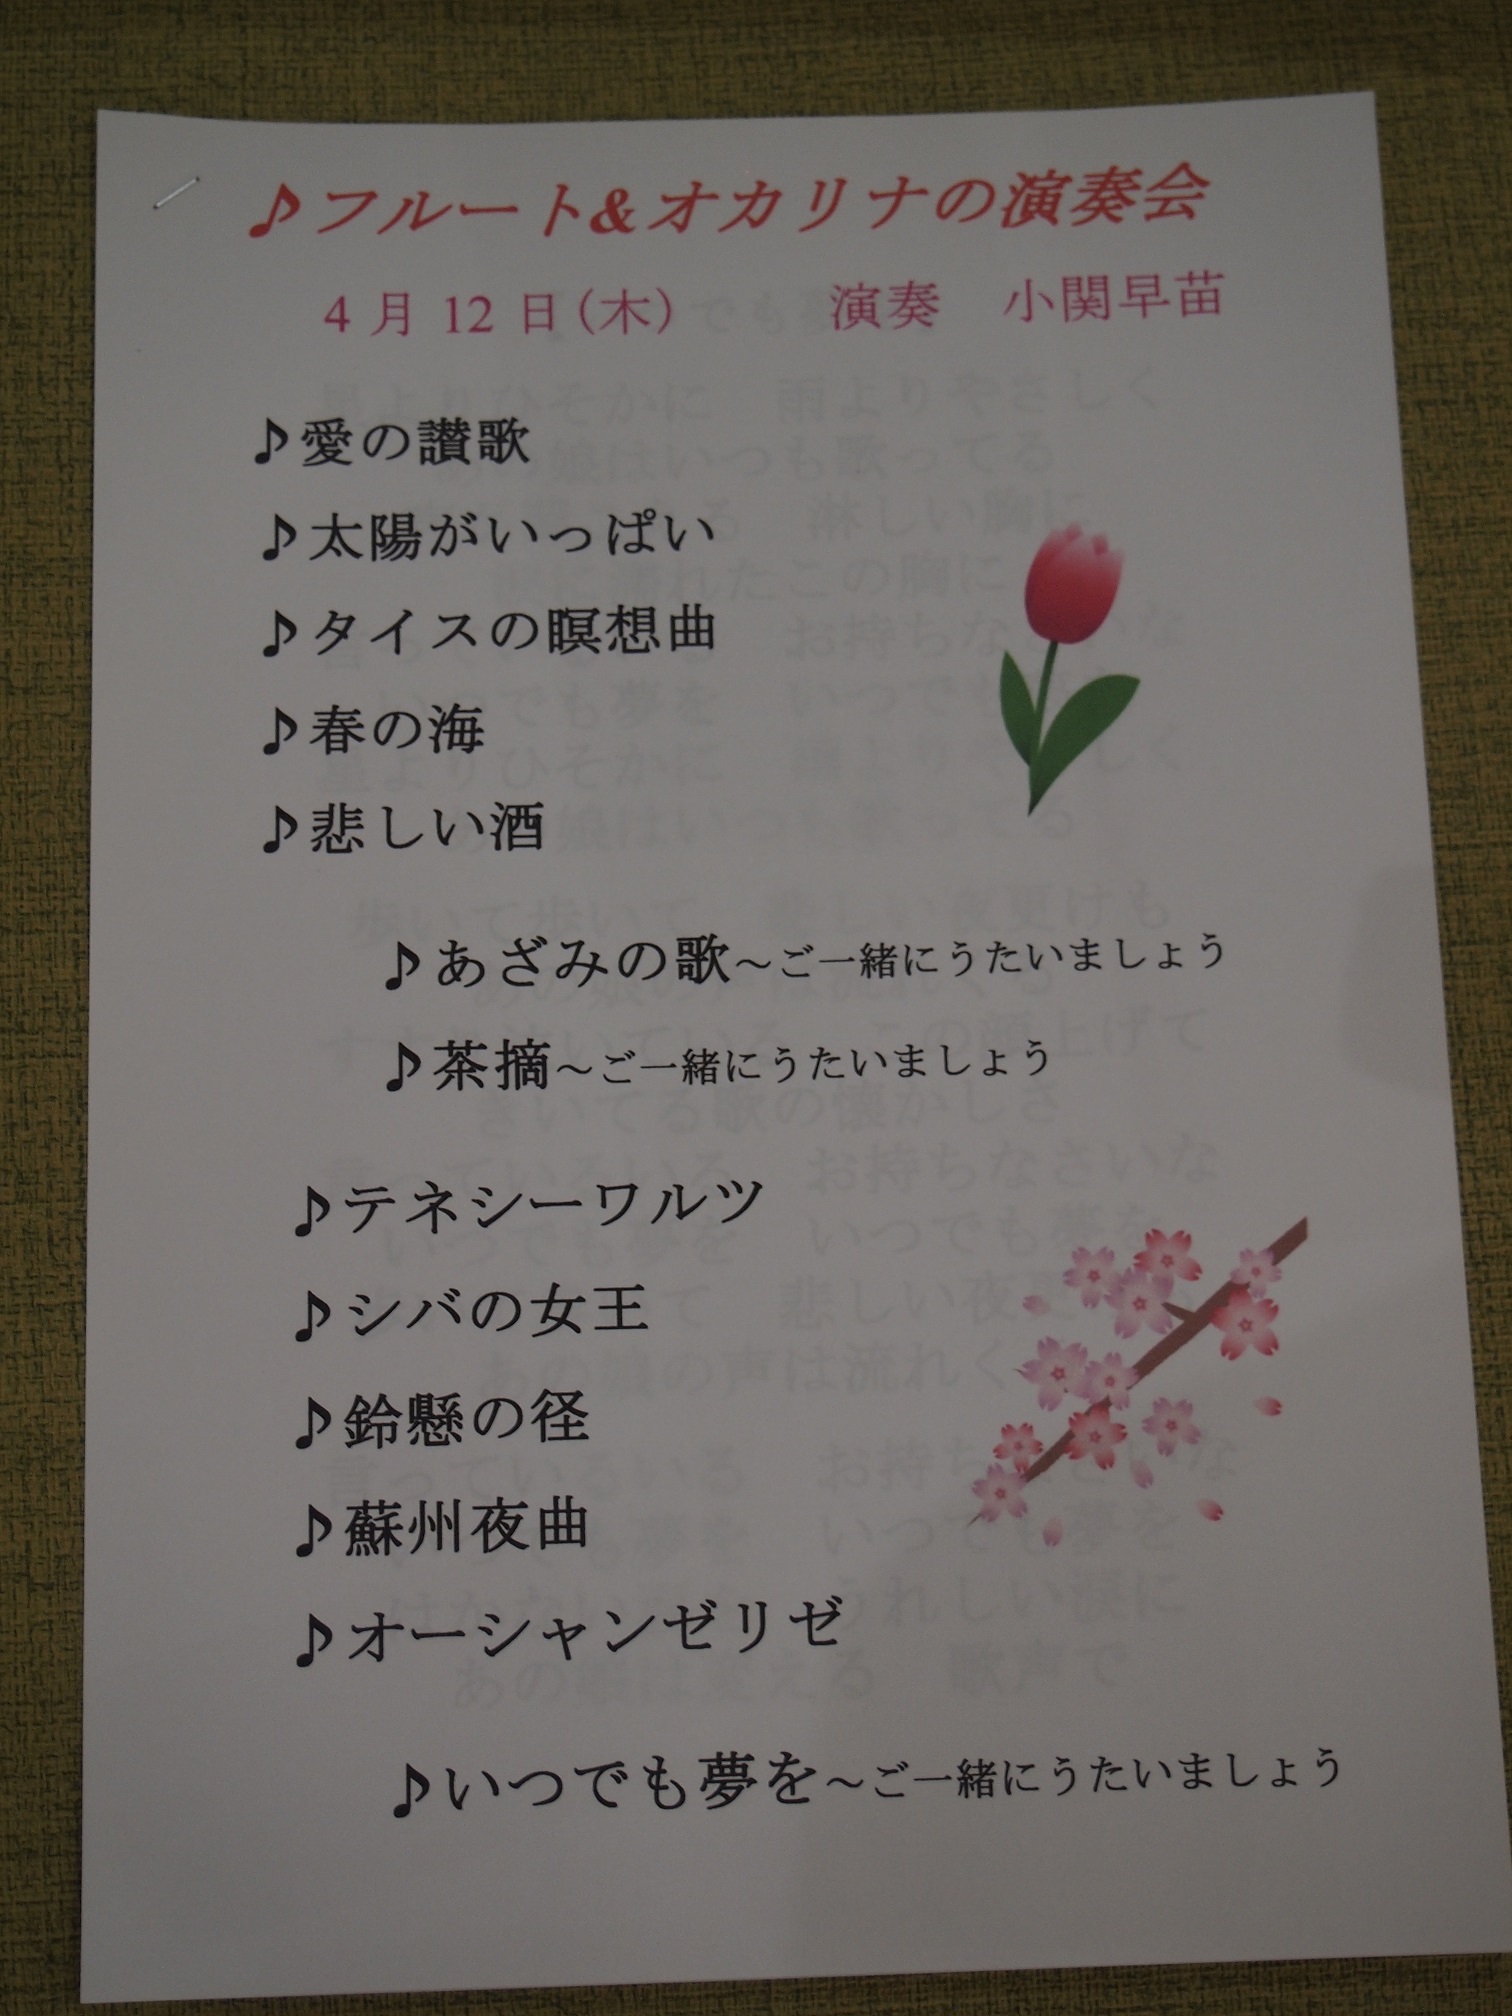 ♪フルート&オカリナの演奏会
4月12日(木)　演奏　小関早苗
♪愛の讃歌
♪太陽がいっぱい
♪タイスの瞑想曲
♪春の海
♪悲しい酒
♪あざみの歌～ご一緒にうたいましょう
♪茶摘～ご一緒にうたいましょう
♪テネシーワルツ
♪シバの女王
♪鈴懸の径
♪蘇州夜曲
♪オーシャンゼリゼ
♪いつでも夢を～ご一緒にうたいましょう